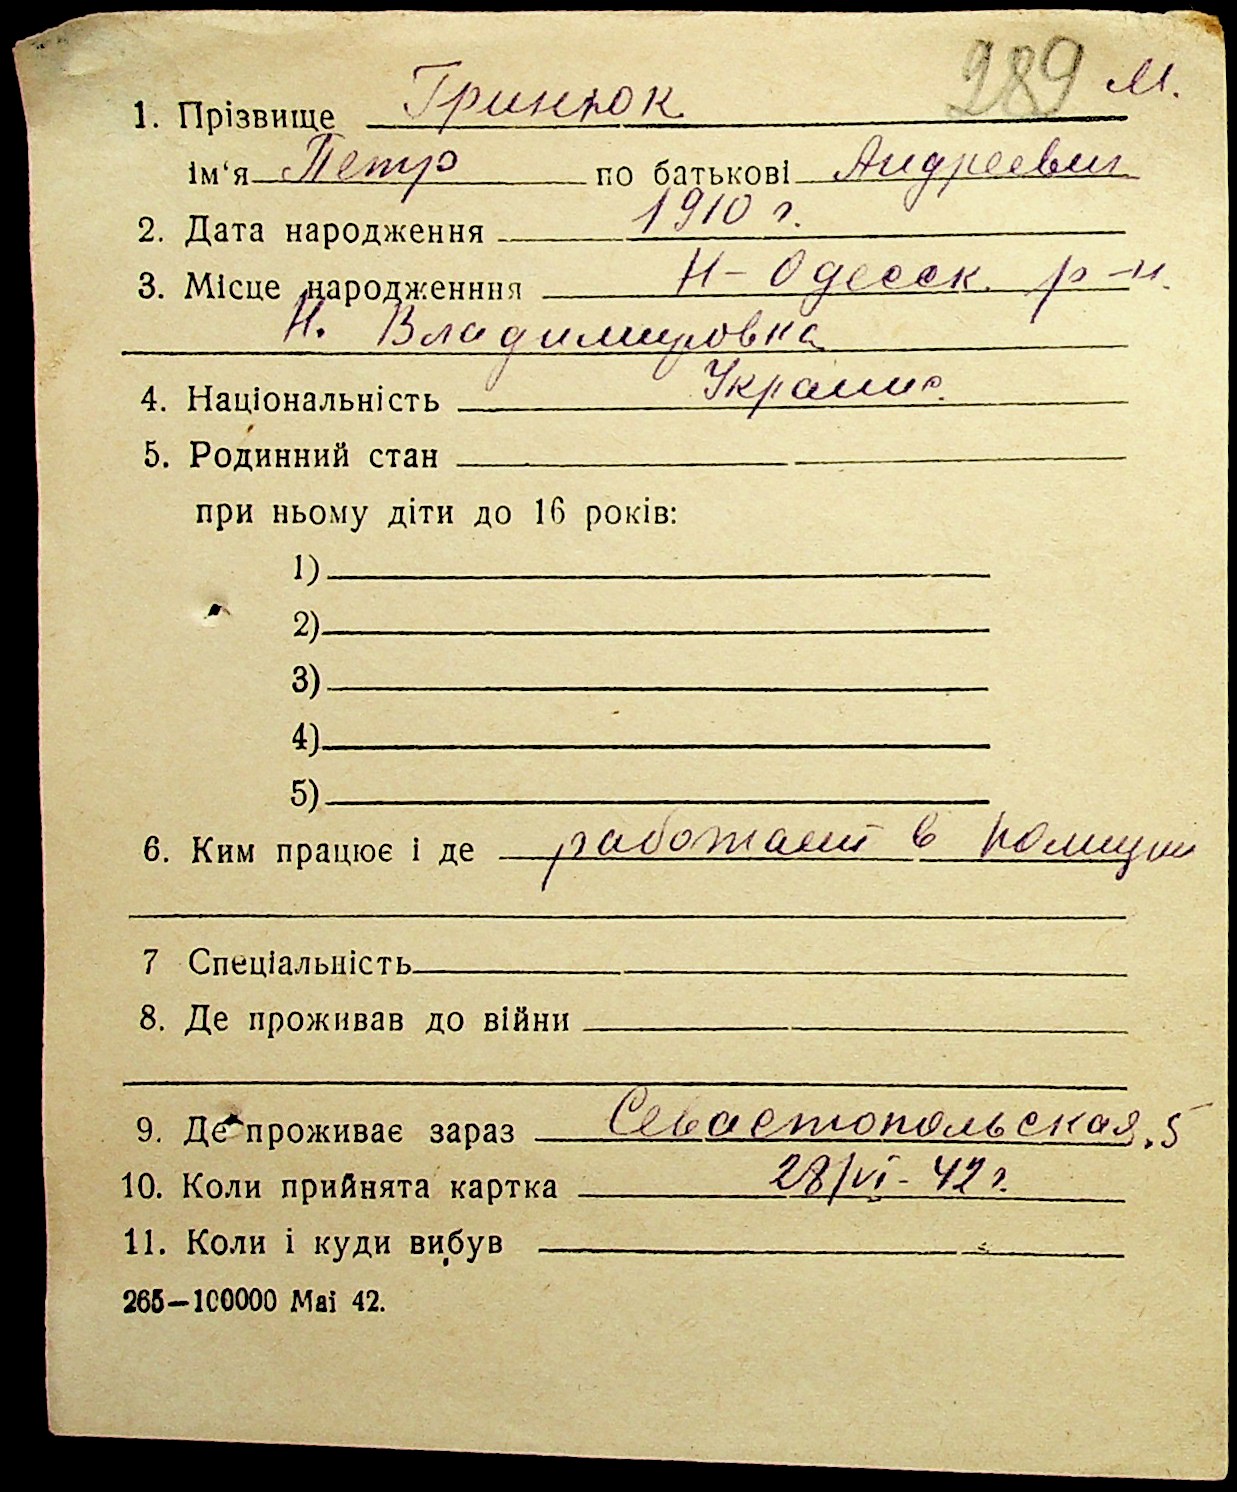 289 М.
1. Прізвище Гринюк
ім‘я Петр по батькові Андреевич
2. Дата народження 1910 г.
3. Місце народженння Н-Одесск. р-н.
Н. Владимировка
4. Національність Украин.
5. Родинний стан
при ньому діти до 16 років:
1)
2)
3)
4)
5)
6. Ким працює і де работает в полиции
7 Спеціальність
8. Де проживав до війни
9. Де проживає зараз Севастопольская. 5
10. Коли прийнята картка 28/VI-42 г.
11. Коли і куди вибув
265—100000 Маі 42.